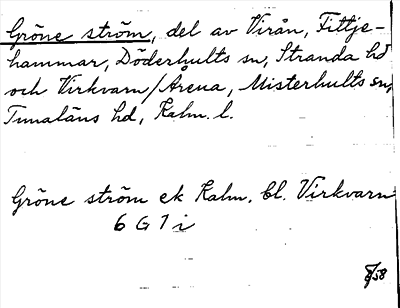 Gröne ström, del av Virån, Fittje-
hammar, Döderhults sn, Stranda hd
och Virkvarn/Årena, Misterhults sn,
Tunaläns hd, Kalm. l.
Gröne ström ek Kalm. bl. Virkvarn
6 G 7 i
8/58